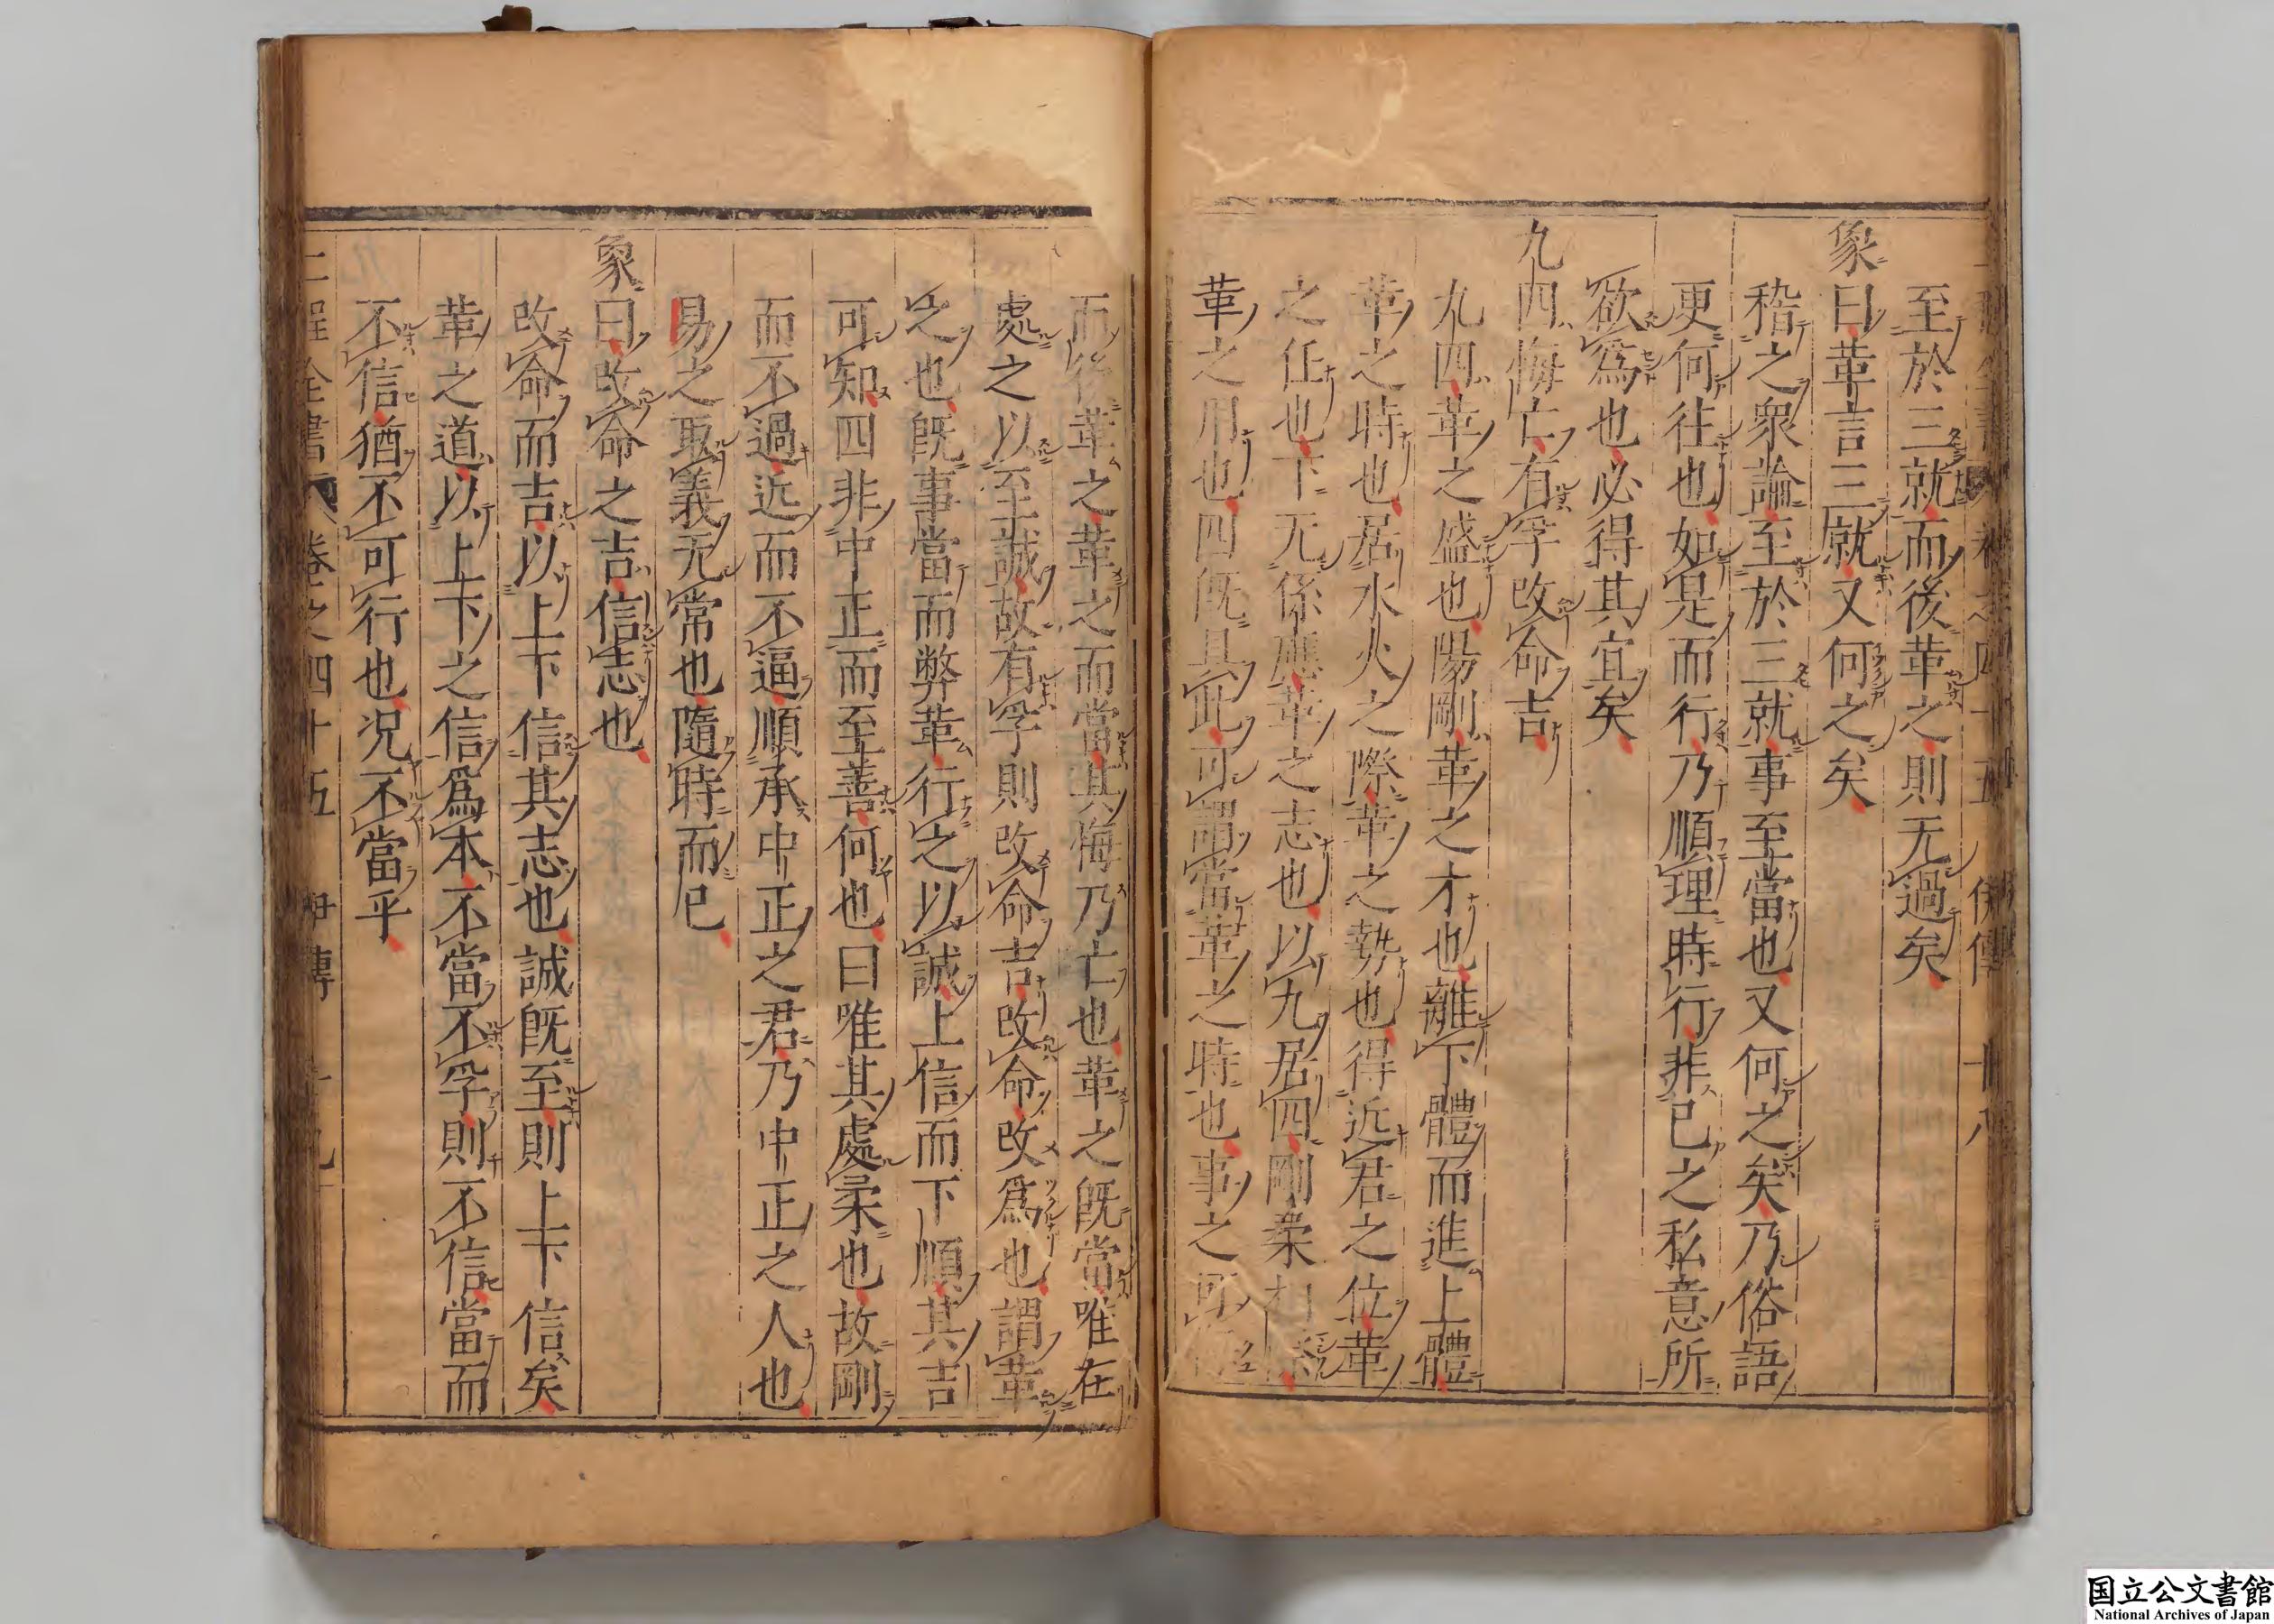 至於三就而後革之則无過矣
象曰革言三就又何之矣
稽之衆論至於三就事至當也又何之矣乃俗語
更何往也如是而行乃順理時行非已之私意所
欲爲也必得其宜矣
九四悔亡有孚改命吉
九四革之盛也陽剛革之才也離下體而進上體
革之時也居水火之際革之勢也得近君之位革
之任也下无係應革之志也以九居四剛柔相際
革之用也四旣具此可謂當革之時也事之可
而後革之革之而當其悔乃亡也革之旣當唯在
處之以至誠故有孚則改命吉改命改爲也謂革
之也旣事當而弊革行之以誠上信而下順其吉
可知四非中正而至善何也曰唯其處柔也故剛
而不過近而不逼順承中正之君乃中正之人也
易之取義无常也隨時而已
象曰改命之吉信志也
改命而吉以上下信其志也誠旣至則上下信矣
革之道以上下之信爲本不當不孚則不信當而
不信猶不可行也况不當乎
二程全書 卷之四十五 伊傳
国立公文書館
National Archives of Japan